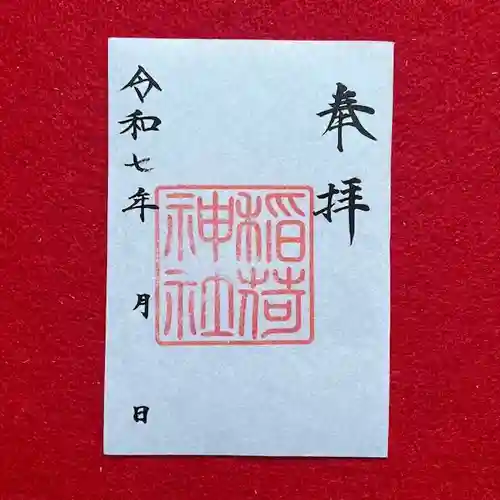 奉拝
稲荷
神社
令和七年 月 日